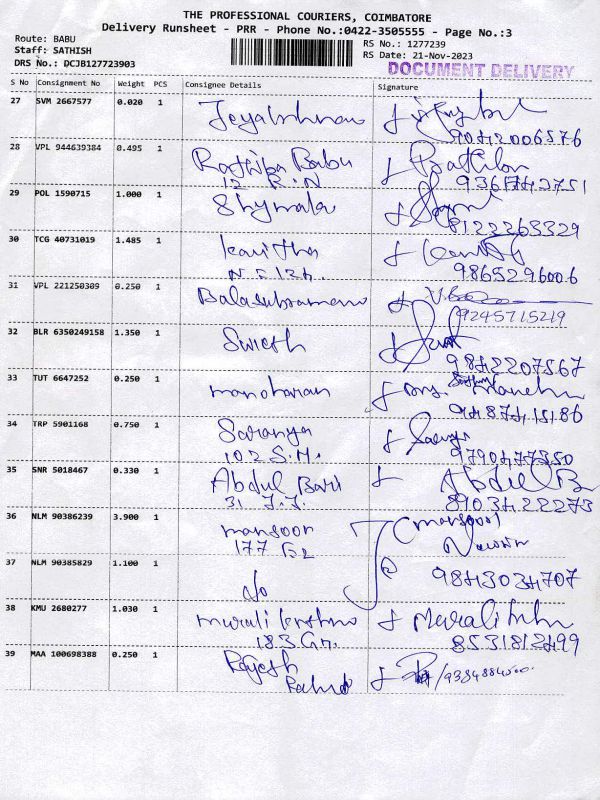 THE PROFESSIONAL COURIERS, COIMBATORE
Delivery Runsheet - PRR - Phone No.:0422-3505555 - Page No.:3
Route: BABU
Staff: SATHISH
DRS No.: DCJB127723903
RS No.: 1277239
RS Date: 21-Nov-2023
DOCUMENT DELIVERY
S No Consignment No Weight PCS Consignee Details Signature
27 SVM 2667577 0.020 1 Jeyakrishnan
9042006576
28 VPL 944639384 0.495 1 Rathiba Babu
12 R.N
9367743751
29 POL 1590715 1.000 1 Shymala
8122265329
30 TCG 40731019 1.485 1 Kavitha
9865296006
31 VPL 221250309 0.250 1 Balasubramani
9245715219
32 BLR 6350249158 1.350 1 Suresh
9842207567
33 TUT 6647252 0.250 1 manoharan
9487415186
34 TRP 5901168 0.750 1 Saranya
102 S.M.
9790477350
35 SNR 5018467 0.330 1 Abdul Bari Abdul B
31 J.J.
8903422273
36 NLM 90386239 3.900 1 mansoor (mansoor)
177
37 NLM 90385829 1.100 1 do
9843034707
38 KMU 2680277 1.030 1 murali krishna
183 G.n.
8531812499
39 MAA 100698388 0.250 1 Rajesh